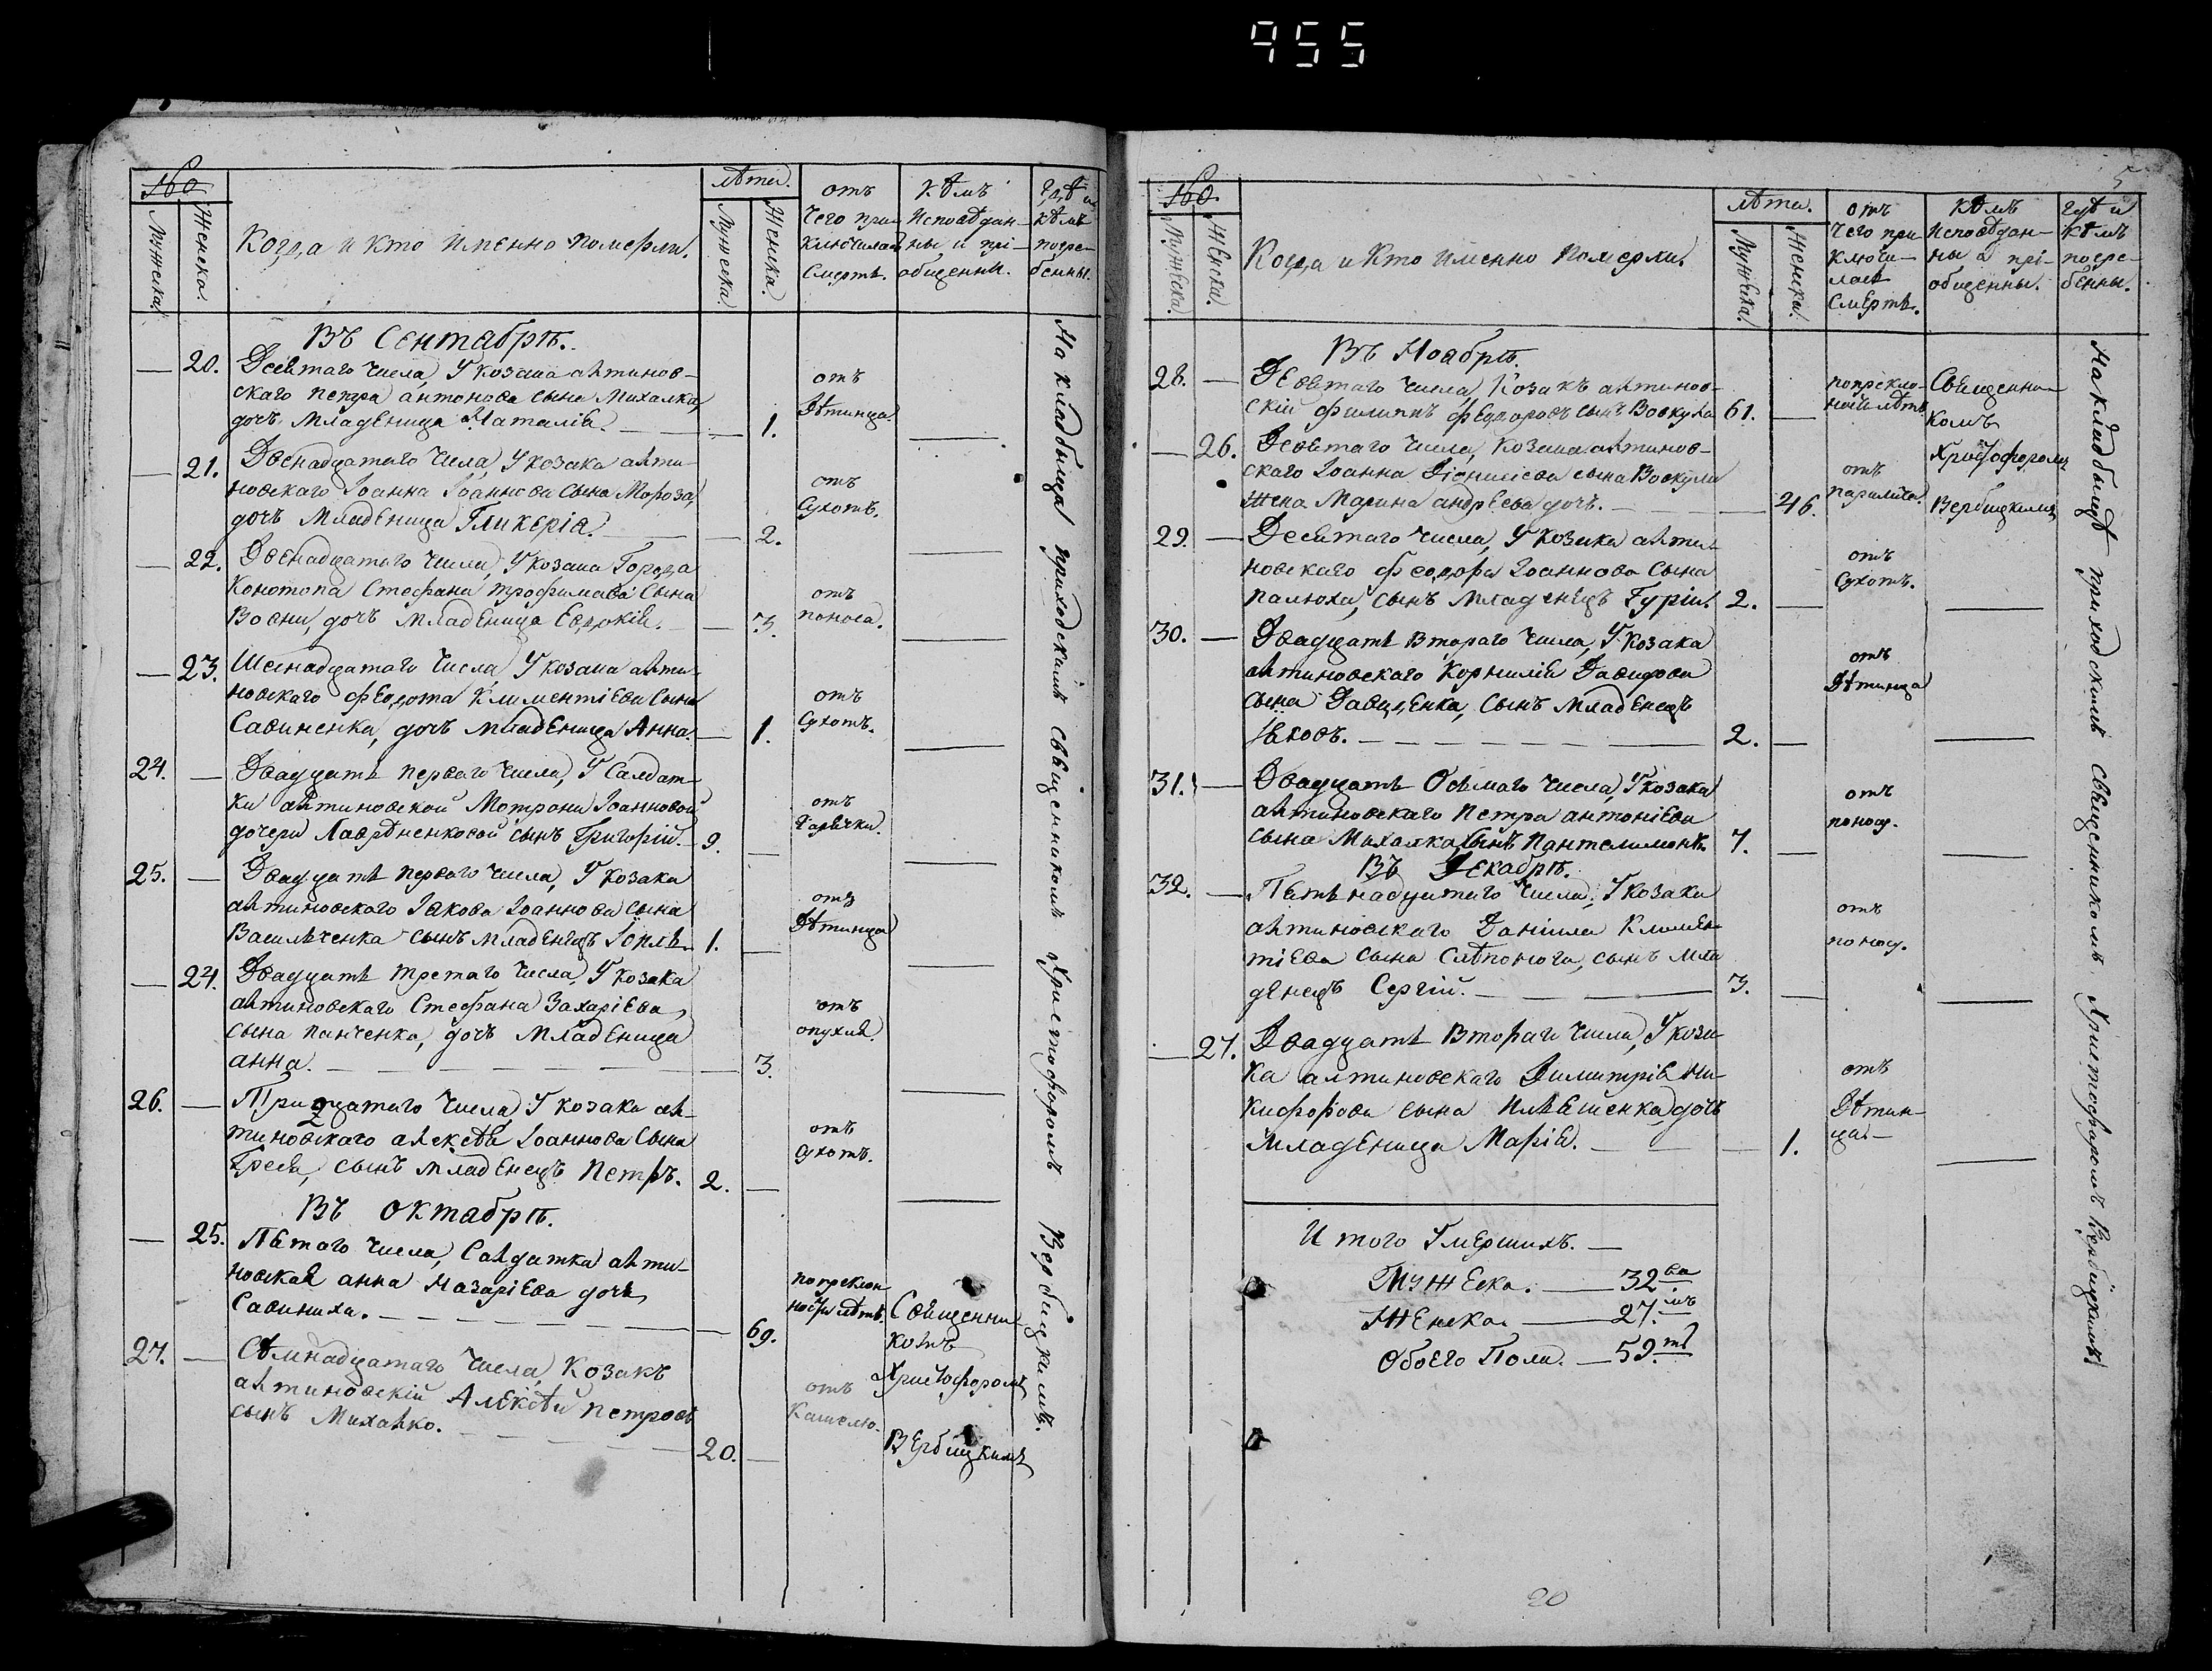 955
№
Мужеска.
Женска.
Когда и кто именно померли.
лѣта.
Мужеска
Женска.
отъ
чего при-
ключилась
Смерть.
кѣмъ
Исповѣдан-
ны и прі-
общенны.
гдѣ и
кѣмъ
погре-
бенны.
Въ Сентабрѣ.
— 20. Девятаго числа, У козака алтинов-
скаго петра антонова сына Михалка,
дочъ младеница Наталія. — 1.
отъ
Дѣтинца
— 21. Двенадцатаго числа, У козака алти-
новскаго Іоанна Іоаннова сына Мороза,
дочъ младеница Гликерія. — 2.
отъ
Сухотъ.
— 22. Двенадцатаго числа, У козака Города
Конотопа Стефана трофимова Сына
дочъ младеница Евдокія. — 3.
отъ
поноса.
— 23. Шеснадцатаго числа, У козака алти-
новскаго Федота Климентіева Сына
Савиненка, дочъ младеница Анна. — 1.
отъ
Сухотъ.
24. — Двадцать перваго числа, У Салдат-
ки алтиновской Мотроны Іоанновой
дочери Лаврѣненковой сынъ Григорій. 9. —
отъ
Гарячки.
25. — Двадцать перваго числа, У козака
алтиновского Іакова Іоаннова сына
Василченка сынъ младенецъ Іоиль. 1. —
отъ
Дѣтинца
— 24. Двадцать третаго числа, У козака
алтиновскаго Стефана Захаріева
сына панченка, дочъ младеница
анна. — 3.
отъ
опухля.
26. — Тридцатаго числа, У козака ал-
тиновскаго алексѣя Іоаннова Сына
сынъ младенецъ Петръ. 2. —
отъ
Сухотъ.
Въ октабрѣ.
— 25. Пятого числа, Салдатка алти-
новская анна Назаріева дочь,
Савиниха. — 69.
попреклон
ности лѣтъ.
Священни
комъ
Христофоромъ
27. — Сѣмнадцатаго числа, Козакъ
алтиновскій Алексѣй петровъ
сынъ Михалко. 20. —
отъ
Кашелю.
Вербицкимъ
На кладбищѣ приходскимъ священникомъ Христофоромъ Вербицкимъ.
5
№
Мужеска.
Женска.
Когда и кто именно померли.
лѣта.
Мужеска.
Женска.
отъ
чего при-
ключи-
лась
Смерть.
кѣмъ
Исповѣдан-
ны и прі-
общенны.
гдѣ и
кѣмъ
погре-
бенны.
Въ Ноабрѣ.
28. — Девятаго числа, Козакъ алтинов-
скій филиппъ федоровъ сынъ Вовкула 61. —
попрекло-
ной лѣтъ
Священни-
комъ
— 26. Девятаго числа, козака алтинов-
скаго Іоанна Діонисіева сына Вовкули
жена Марина андреева дочъ. — 46.
отъ
паралича.
Христофоромъ
Вербицкимъ
29. — Десятаго числа, У козака алти-
новскаго Феодора Іоаннова Сына
палюха, сынъ младенецъ Гурій. 2. —
отъ
Сухотъ.
30. — Двадцать втораго числа, У козака
алтиновскаго Корнилія Давидова
сына Давиденка, сынъ младенецъ
Іаковъ. 2. —
отъ
Дѣтинца
31. — Двадцать Осьмаго числа, У козака
алтиновскаго Петра антоніева
сына Михалка, сынъ Пантелимонъ. 7. —
отъ
понос.
Въ Декабрѣ.
32. — Пятьнадцатаго числа, У козака
алтиновскаго Даніила Климен-
тіева сына Слѣпонога, сынъ мла
денецъ Сергій. 3. —
отъ
понос.
— 27. Двадцать Втораго числа, У коза-
ка алтиновскаго Димитрія Ни-
кифорова сына дочъ
младеница Марія. — 1.
отъ
Дѣтин-
ца.
Итого Умершихъ. —
Мужеска. — 32ва
Женска. — 27.мъ
Обоего Пола. — 59.ть
На кладбищѣ приходскимъ священникомъ Христофоромъ Вербицкимъ
20